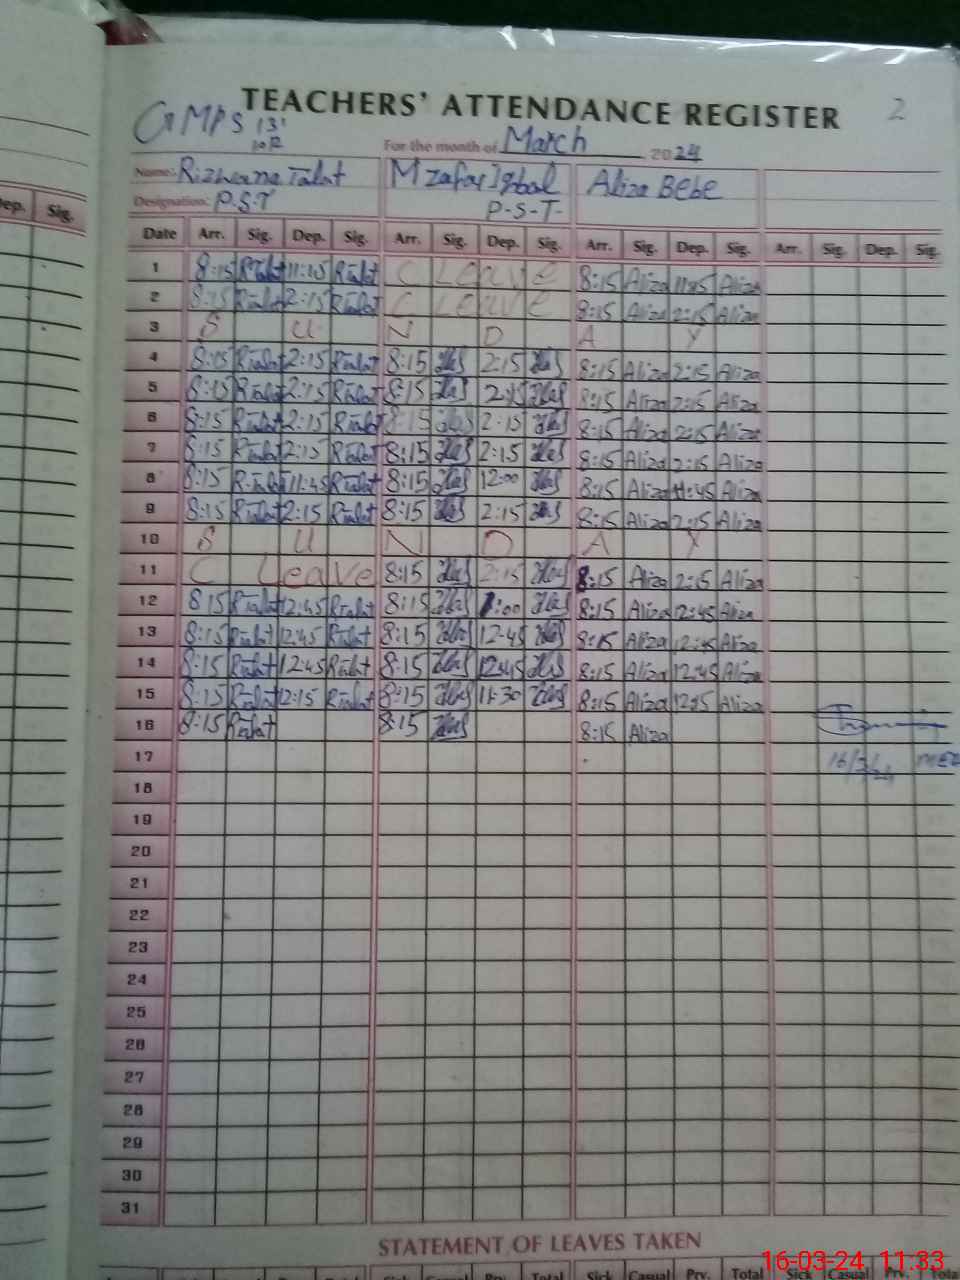 2
TEACHERS' ATTENDANCE REGISTER
GMPS 13'
10R
For the month of March 2024
Name: Talat M Zafar Iqbal Aliza BEBE
Designation: P.S.T P-S-T-
ep. Sig. Date Arr. Sig. Dep. Sig. Arr. Sig. Dep. Sig. Arr. Sig. Dep. Sig. Arr. Sig. Dep. Sig.
1 8:15 R.Talat 11:15 R.Talat C Leave 8:15 Aliza 11:45 Aliza
2 8:15 R.Talat 2:15 R.Talat C Leave 8:15 Aliza 2:15 Aliza
3 S U N D A Y
4 8:15 R.Talat 2:15 R.Talat 8:15 2:15 8:15 Aliza 2:15 Aliza
5 8:15 R.Talat 2:15 R.Talat 8:15 2:15 8:15 Aliza 2:15 Aliza
6 8:15 R.Talat 2:15 R.Talat 8:15 2:15 8:15 Aliza 2:15 Aliza
7 8:15 R.Talat 2:15 R.Talat 8:15 2:15 8:15 Aliza 2:15 Aliza
8 8:15 R.Talat 11:45 R.Talat 8:15 12:00 8:15 Aliza 11:45 Aliza
9 8:15 R.Talat 2:15 R.Talat 8:15 2:15 8:15 Aliza 2:15 Aliza
10 S U N D A Y
11 C Leave 8:15 2:15 8:15 Aliza 2:15 Aliza
12 8 15 R.Talat 12:45 R.Talat 8:15 1:00 8:15 Aliza 12:45 Aliza
13 8:15 R.Talat 12:45 R.Talat 8:15 12-45 8:15 Aliza 12:45 Aliza
14 8:15 R.Talat 12:45 R.Talat 8:15 12:45 8:15 Aliza 12:45 Aliza
15 8:15 R.Talat 12:15 R.Talat 8:15 11-30 8:15 Aliza 12:15 Aliza
16 8:15 R.Talat 8:15 8:15 Aliza
17 16/3/24 MEA
18
19
20
21
22
23
24
25
26
27
28
29
30
31
STATEMENT OF LEAVES TAKEN
Sick Casual Prv. Total Sick Casual Prv. Total Sick Casual Prv. Total
16-03-24 11:33